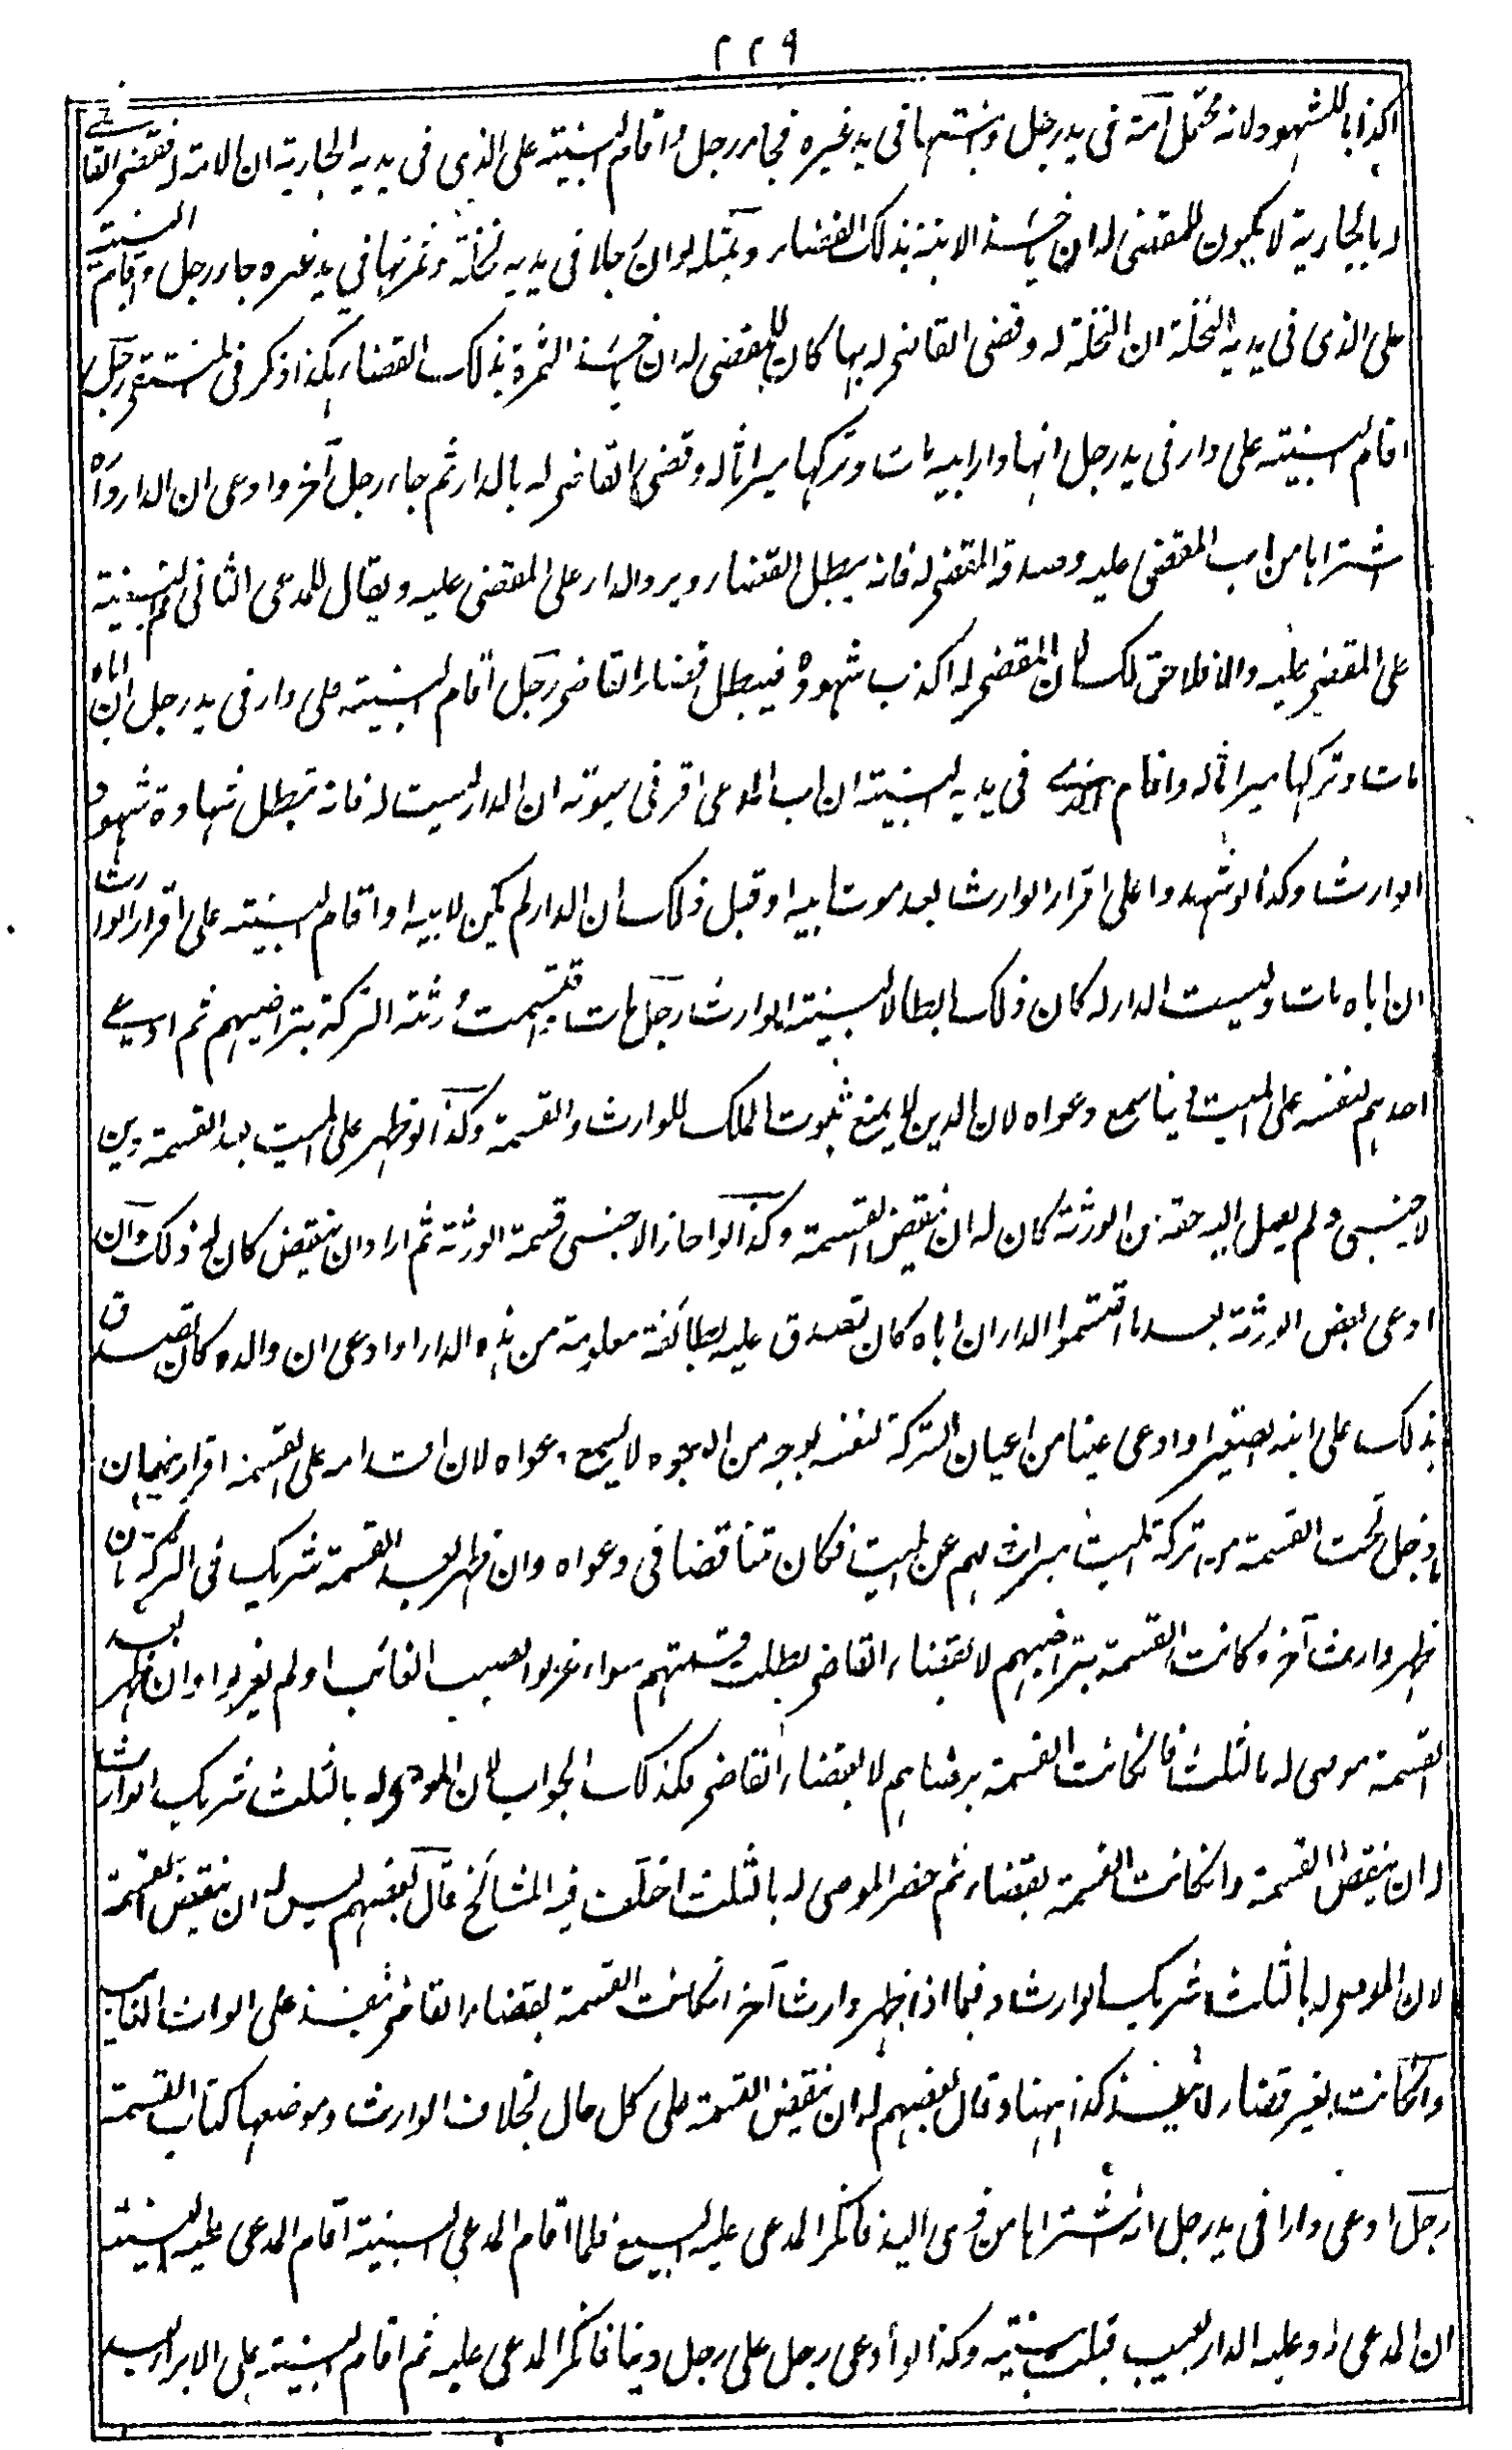 ٢٢٩
اكذابا للشهود لانه محتمل امة فى يد رجل وبنتها فى يد غيره فجاء رجل واقام البينة على الذى فى يديه الجارية ان الامة له فقضى القاضى
له بالجارية لا يكون للمقضى له ان ياخذ الابنة بذلك القضاء وبمثله لو ان رجلا فى يديه نخلة وثمرتها فى يد غيره جاء رجل واقام البينة
على الذى فى يديه النخلة ان النخلة له وقضى القاضى له بها كان للمقضى له ان ياخذ الثمرة بذلك القضاء هكذا ذكر فى المنتقى رجل
اقام البينة على دار فى يد رجل انها دار ابيه مات وتركها ميراثا له وقضى القاضى له بالدار ثم جاء رجل آخر وادعى ان الدار داره
اشتراها من اب المقضى عليه وصدقه المقضى له فانه يبطل القضاء ويرد الدار على المقضى عليه ويقال للمدعى الثانى اقم البينة
على المقضى عليه والا فلا حق لك لان المقضى له اكذب شهوده فيبطل قضاء القاضى رجل اقام البينة على دار فى يد رجل ان اباه
مات وتركها ميراثا له واقام الذى فى يديه البينة ان اب المدعى اقر فى حيوته ان الدار ليست له فانه تبطل شهادة شهود
الوارث وكذا لو شهدوا على اقرار الوارث بعد موت ابيه او قبل ذلك ان الدار لم يكن لابيه او اقام البينة على اقرار الوارث
ان اباه مات وليست الدار له كان ذلك ابطالا لبينة الوارث رجل مات فقسمت ورثته التركة بتراضيهم ثم ادعى
احدهم لنفسه على الميت دينا سمع دعواه لان الدين لا يمنع ثبوت الملك للوارث والقسمة وكذا لو ظهر على الميت بعد القسمة دين
لاجنبى ولم يصل اليه حقه من الورثة كان له ان ينقض القسمة وكذا لو اجاز الاجنبى قسمة الورثة ثم اراد ان ينقض كان له ذلك وان
ادعى بعض الورثة بعد ما اقتسموا الدار ان اباه كان تصدق عليه بطائفة معلومة من هذه الدار او ادعى ان والده كان تصدق
بذلك على ابنه الصغير او ادعى عينا من اعيان التركة لنفسه بوجه من الوجوه لا يسمع دعواه لان اقدامه على القسمة اقرار منهم ان
ما دخل تحت القسمة من تركة الميت ميراث لهم عن الميت فكان متناقضا فى دعواه وان ظهر بعد القسمة شريك فى التركة بان
ظهر وارث آخر وكانت القسمة بتراضيهم لا بقضاء القاضى بطلت قسمتهم سواء عزلوا نصيب الغائب او لم يعزلوا وان ظهر بعد
القسمة موصى له بالثلث فانكانت القسمة برضاهم لا بقضاء القاضى فكذلك الجواب لان الموصى له بالثلث شريك الوارث
له ان ينقض القسمة وانكانت القسمة بقضاء ثم حضر الموصى له بالثلث اختلف فيه المشائخ قال بعضهم ليس له ان ينقض القسمة
لان الموصى له بالثلث شريك الوارث وفيما اذا ظهر وارث آخر انكانت القسمة بقضاء القاضى ينفذ على الوارث الغائب
وانكانت بغير قضاء لا ينفذ كذا ههنا وقال بعضهم له ان ينقض القسمة على كل حال بخلاف الوارث وموضعها كتاب القسمة
رجل ادعى دارا فى يد رجل انه اشتراها من ذى اليد فانكر المدعى عليه البيع فلما اقام المدعى البينة اقام المدعى عليه البينة
ان المدعى رد عليه الدار بعيب قبلت بينته وكذا لو ادعى رجل على رجل دينا فانكر المدعى عليه ثم اقام البينة على الابراء